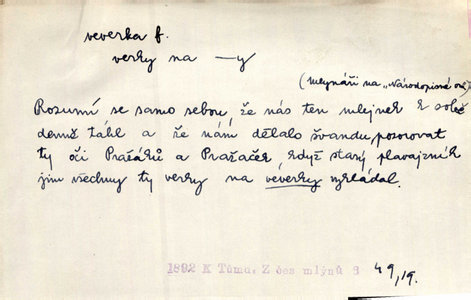 veverka f.
verky na —y
(mlynáři na „Národopisné
Rozumí se samo sebou, že nás ten mlejnek k sobě
táhl a že nám dělalo švandu pozorovat
ty oči Pražáků a Pražaček, když starý plavajzník
jim všechny ty verky na veverky vykládal.
1892 K Tůma. Z čes mlýnů 3 49,19.